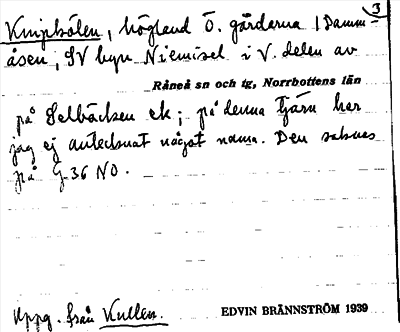 3
Knipkölen, högland Ö. gårdarna i Damm-
åsen, SV byn Niemisel i V. delen av
Råneå sn och tg, Norrbottens län
på Selbäcken ek; på denna tjärn har
jag ej antecknat något namn. Den saknas
på G-36 NO.
Uppg. från Kullen.
EDVIN BRÄNNSTRÖM 1939